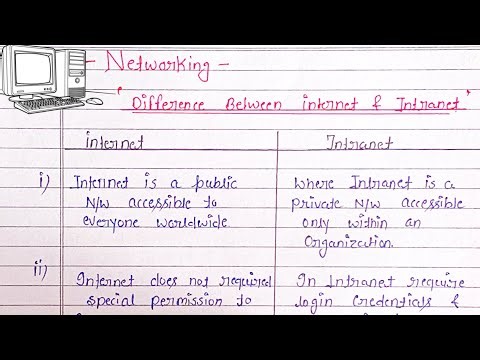 - Networking -
" Difference Between internet & Intranet "
internet Intranet
i) Internet is a public where Intranet is a
N/W accessible to private N/W accessible
everyone worldwide. only within an
Organization.
ii) Internet does not required In Intranet require
special permission to login credentials &